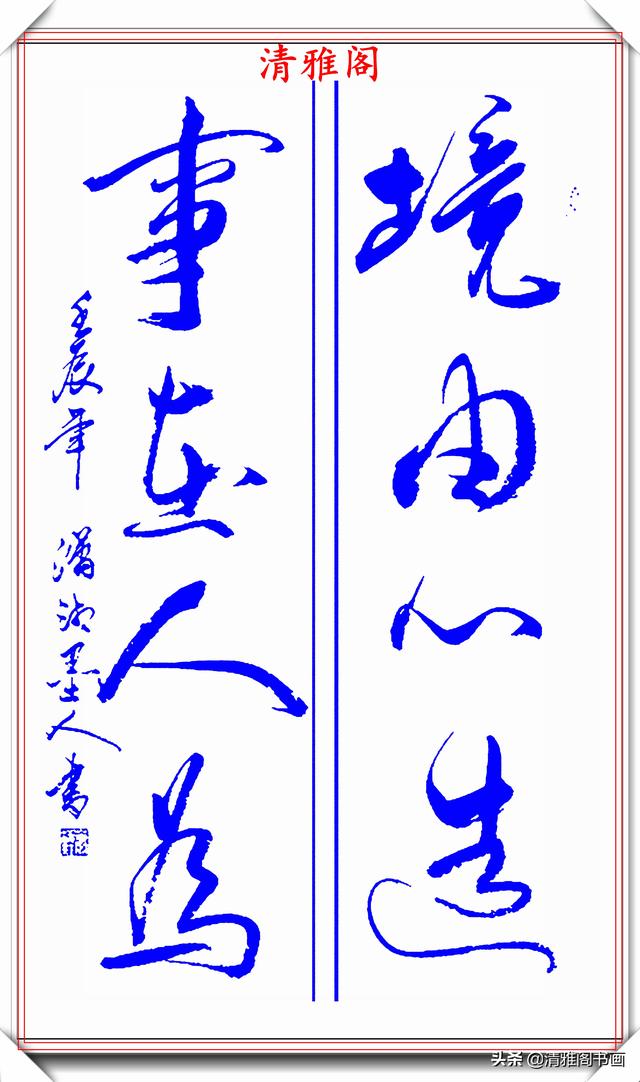 清雅阁
境由心造
事在人为
壬辰年 潇湘墨人书
头条 @清雅阁书画